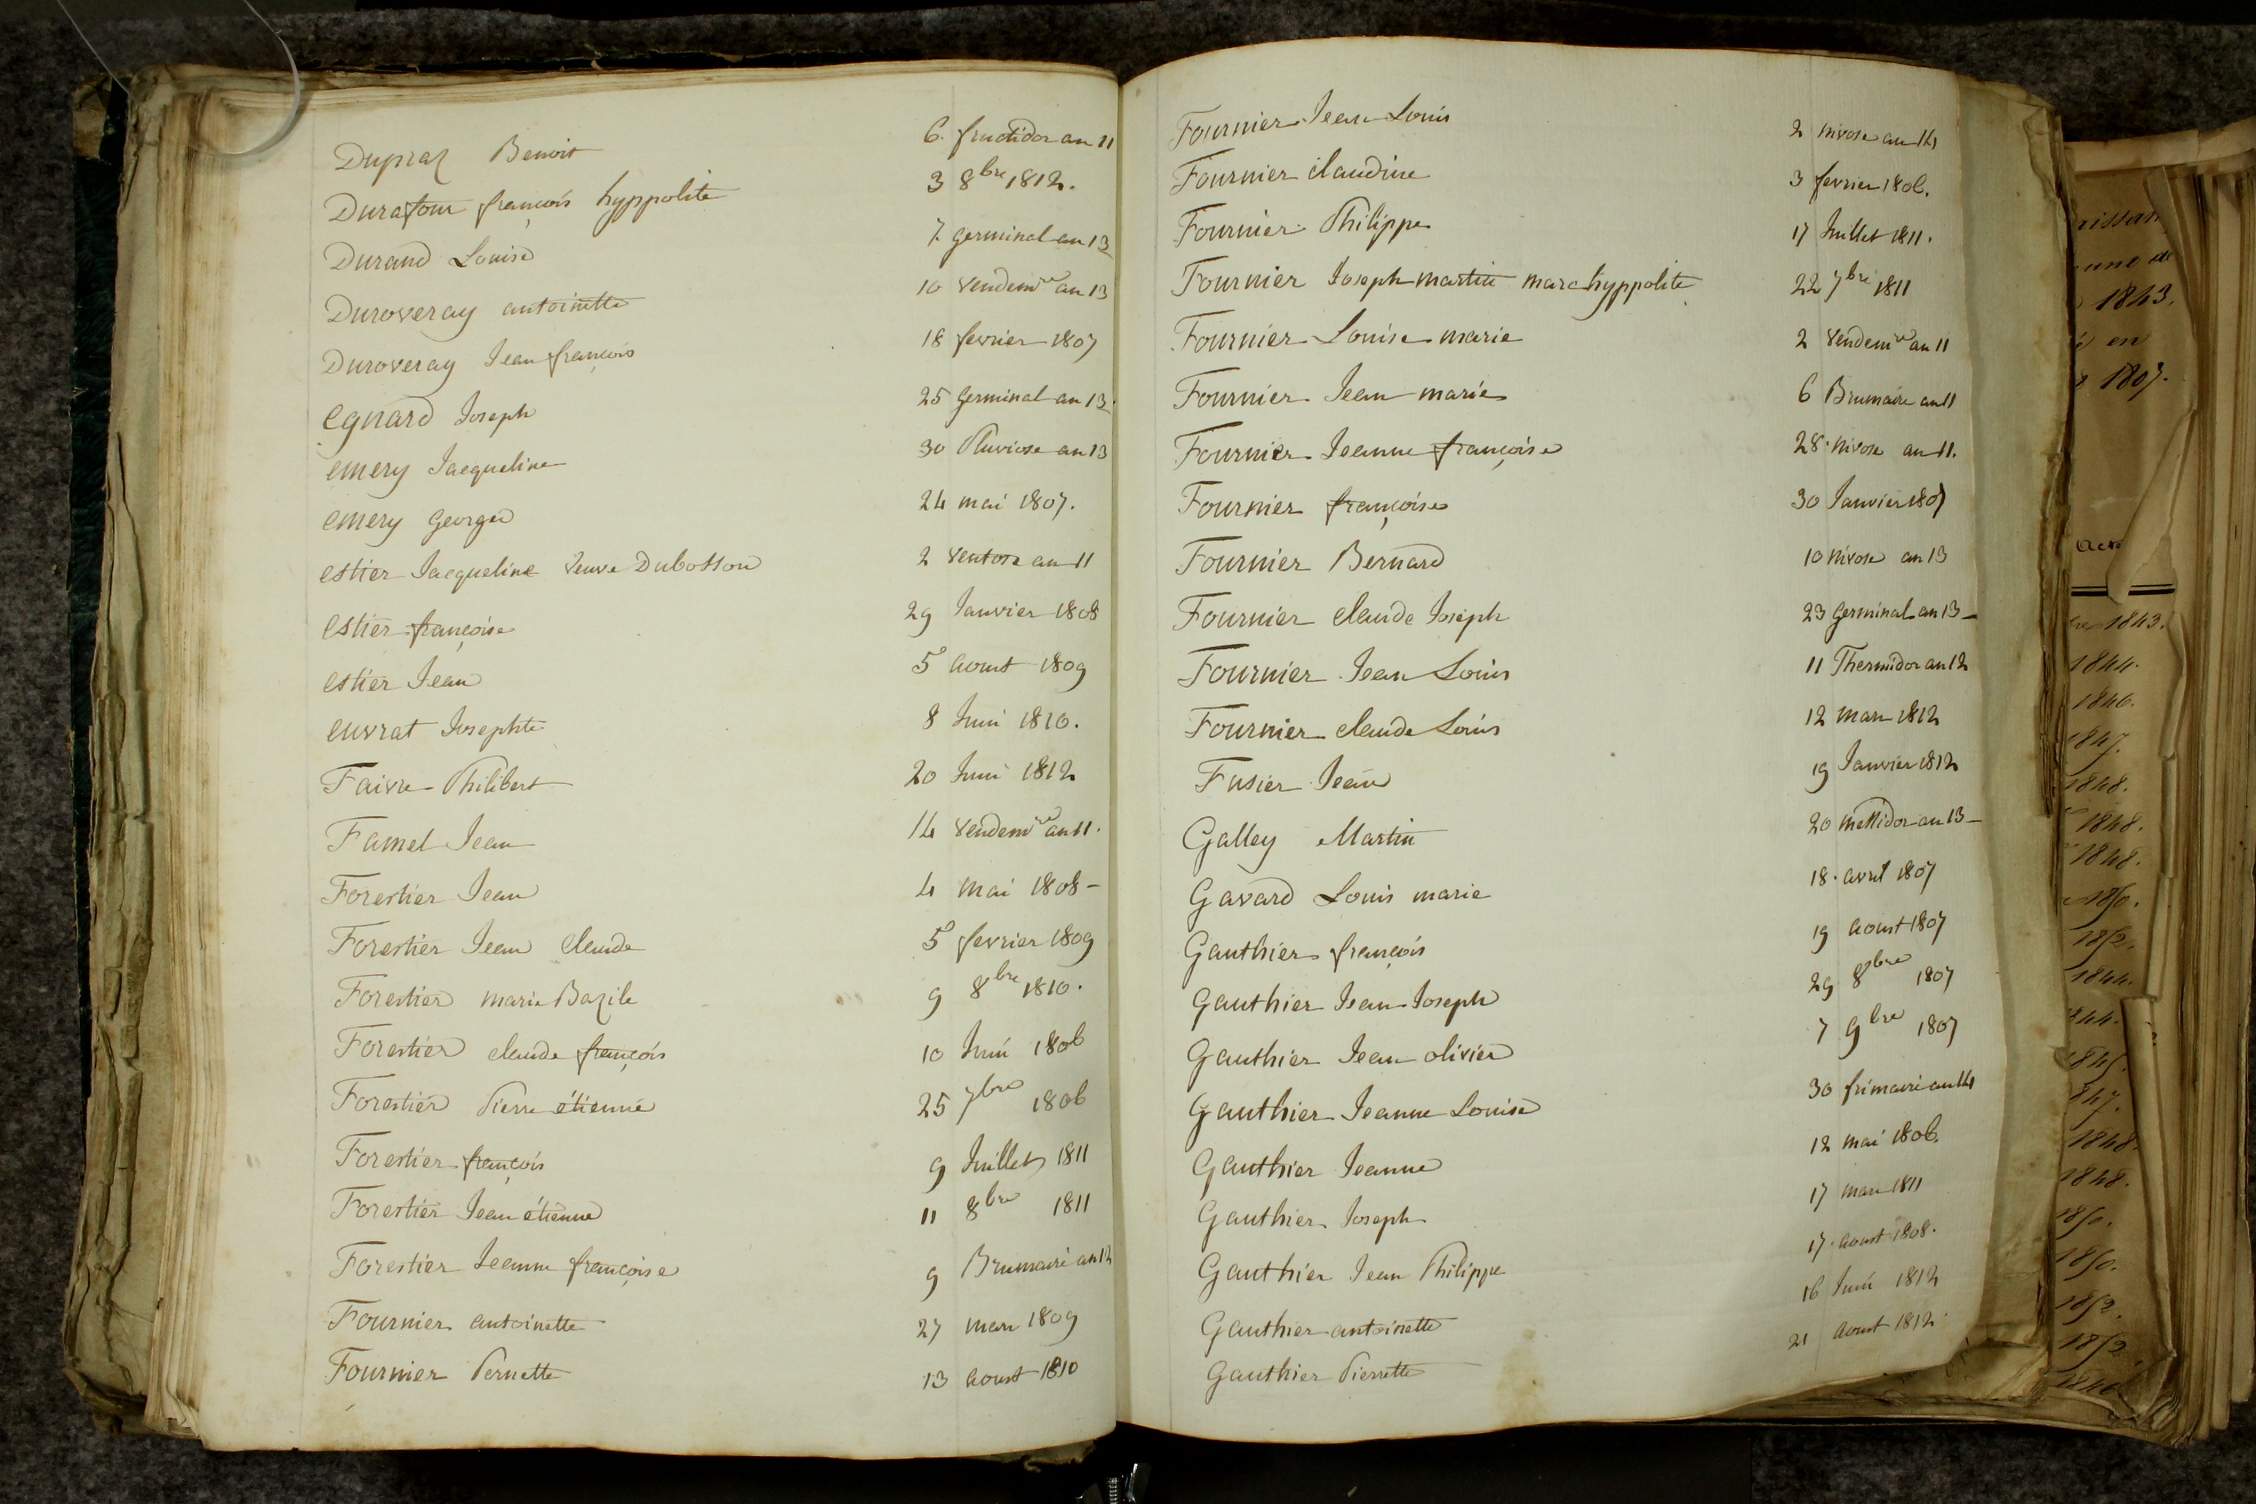 Dupraz Benoit 6. fructidor an 11
Durafour françois hyppolite 3 8bre 1812.
Durand Louise 7 germinal an 13
Duroveray antoinette 10 vendemre an 13
Duroveray Jean françois 18 fevrier 1807
Egnard Joseph 25 germinal an 13.
emery Jacqueline 30 Pluviose an 13
emery George 24 mai 1807.
estier Jacqueline veuve Dubosson 2 ventose an 11
estier françoise 29 Janvier 1808
estier Jean 5 aoust 1809
euvrat Josephte 8 Juin 1810.
Faivre Philibert 20 Juin 1812
Famel Jean 14 vendemre an 11.
Forestier Jean 4 mai 1808 -
Forestier Jean Claude 5 fevrier 1809
Forestier marie Bazile 9 8bre 1810.
Forestier claude françois 10 Juin 1806
Forestier Pierre étienne 25 7bre 1806
Forestier françois 9 Juillet 1811
Forestier Jean étienne 11 8bre 1811
Forestier Jeanne françoise 9 Brumaire an 12
Fournier antoinette 27 mars 1809
Fournier Pernette 13 aoust 1810
Fournier Jean Louis 2 nivose an 14
Fournier Claudine 3 fevrier 1806.
Fournier Philippe 17 Juillet 1811.
Fournier Joseph martin marc hyppolite 22 7bre 1811
Fournier Louise marie 2 vendemre an 11
Fournier Jean marie 6 Brumaire an 11
Fournier Jeanne françoise 28. nivose an 11.
Fournier françoise 30 Janvier 1807
Fournier Bernard 10 nivose an 13
Fournier claude Joseph 23 germinal an 13 -
Fournier Jean Louis 11 Thermidor an 12
Fournier claude Louis 12 mars 1812
Fusier Jean 19 Janvier 1812
Galley Martin 20 messidor an 13 -
Gavard Louis marie 18. avril 1807
Gauthier françois 19 aoust 1807
Gauthier Jean Joseph 29 8bre 1807
Gauthier Jean olivier 7 9bre 1807
Gauthier Jeanne Louise 30 frimaire an 14
Gauthier Jeanne 12 mai 1806.
Gauthier Joseph 17 mars 1811
Gauthier Jean Philippe 17. aoust 1808.
Gauthier antoinette 16 Juin 1812
Gauthier Pierrette 21 aoust 1812.
1843.
en
1807.
1843.
1844.
1846.
1847.
1848.
1848.
1848.
1850.
1852.
1844.
844.
1845.
847.
1848.
1848.
1850.
1850.
1852.
1852.